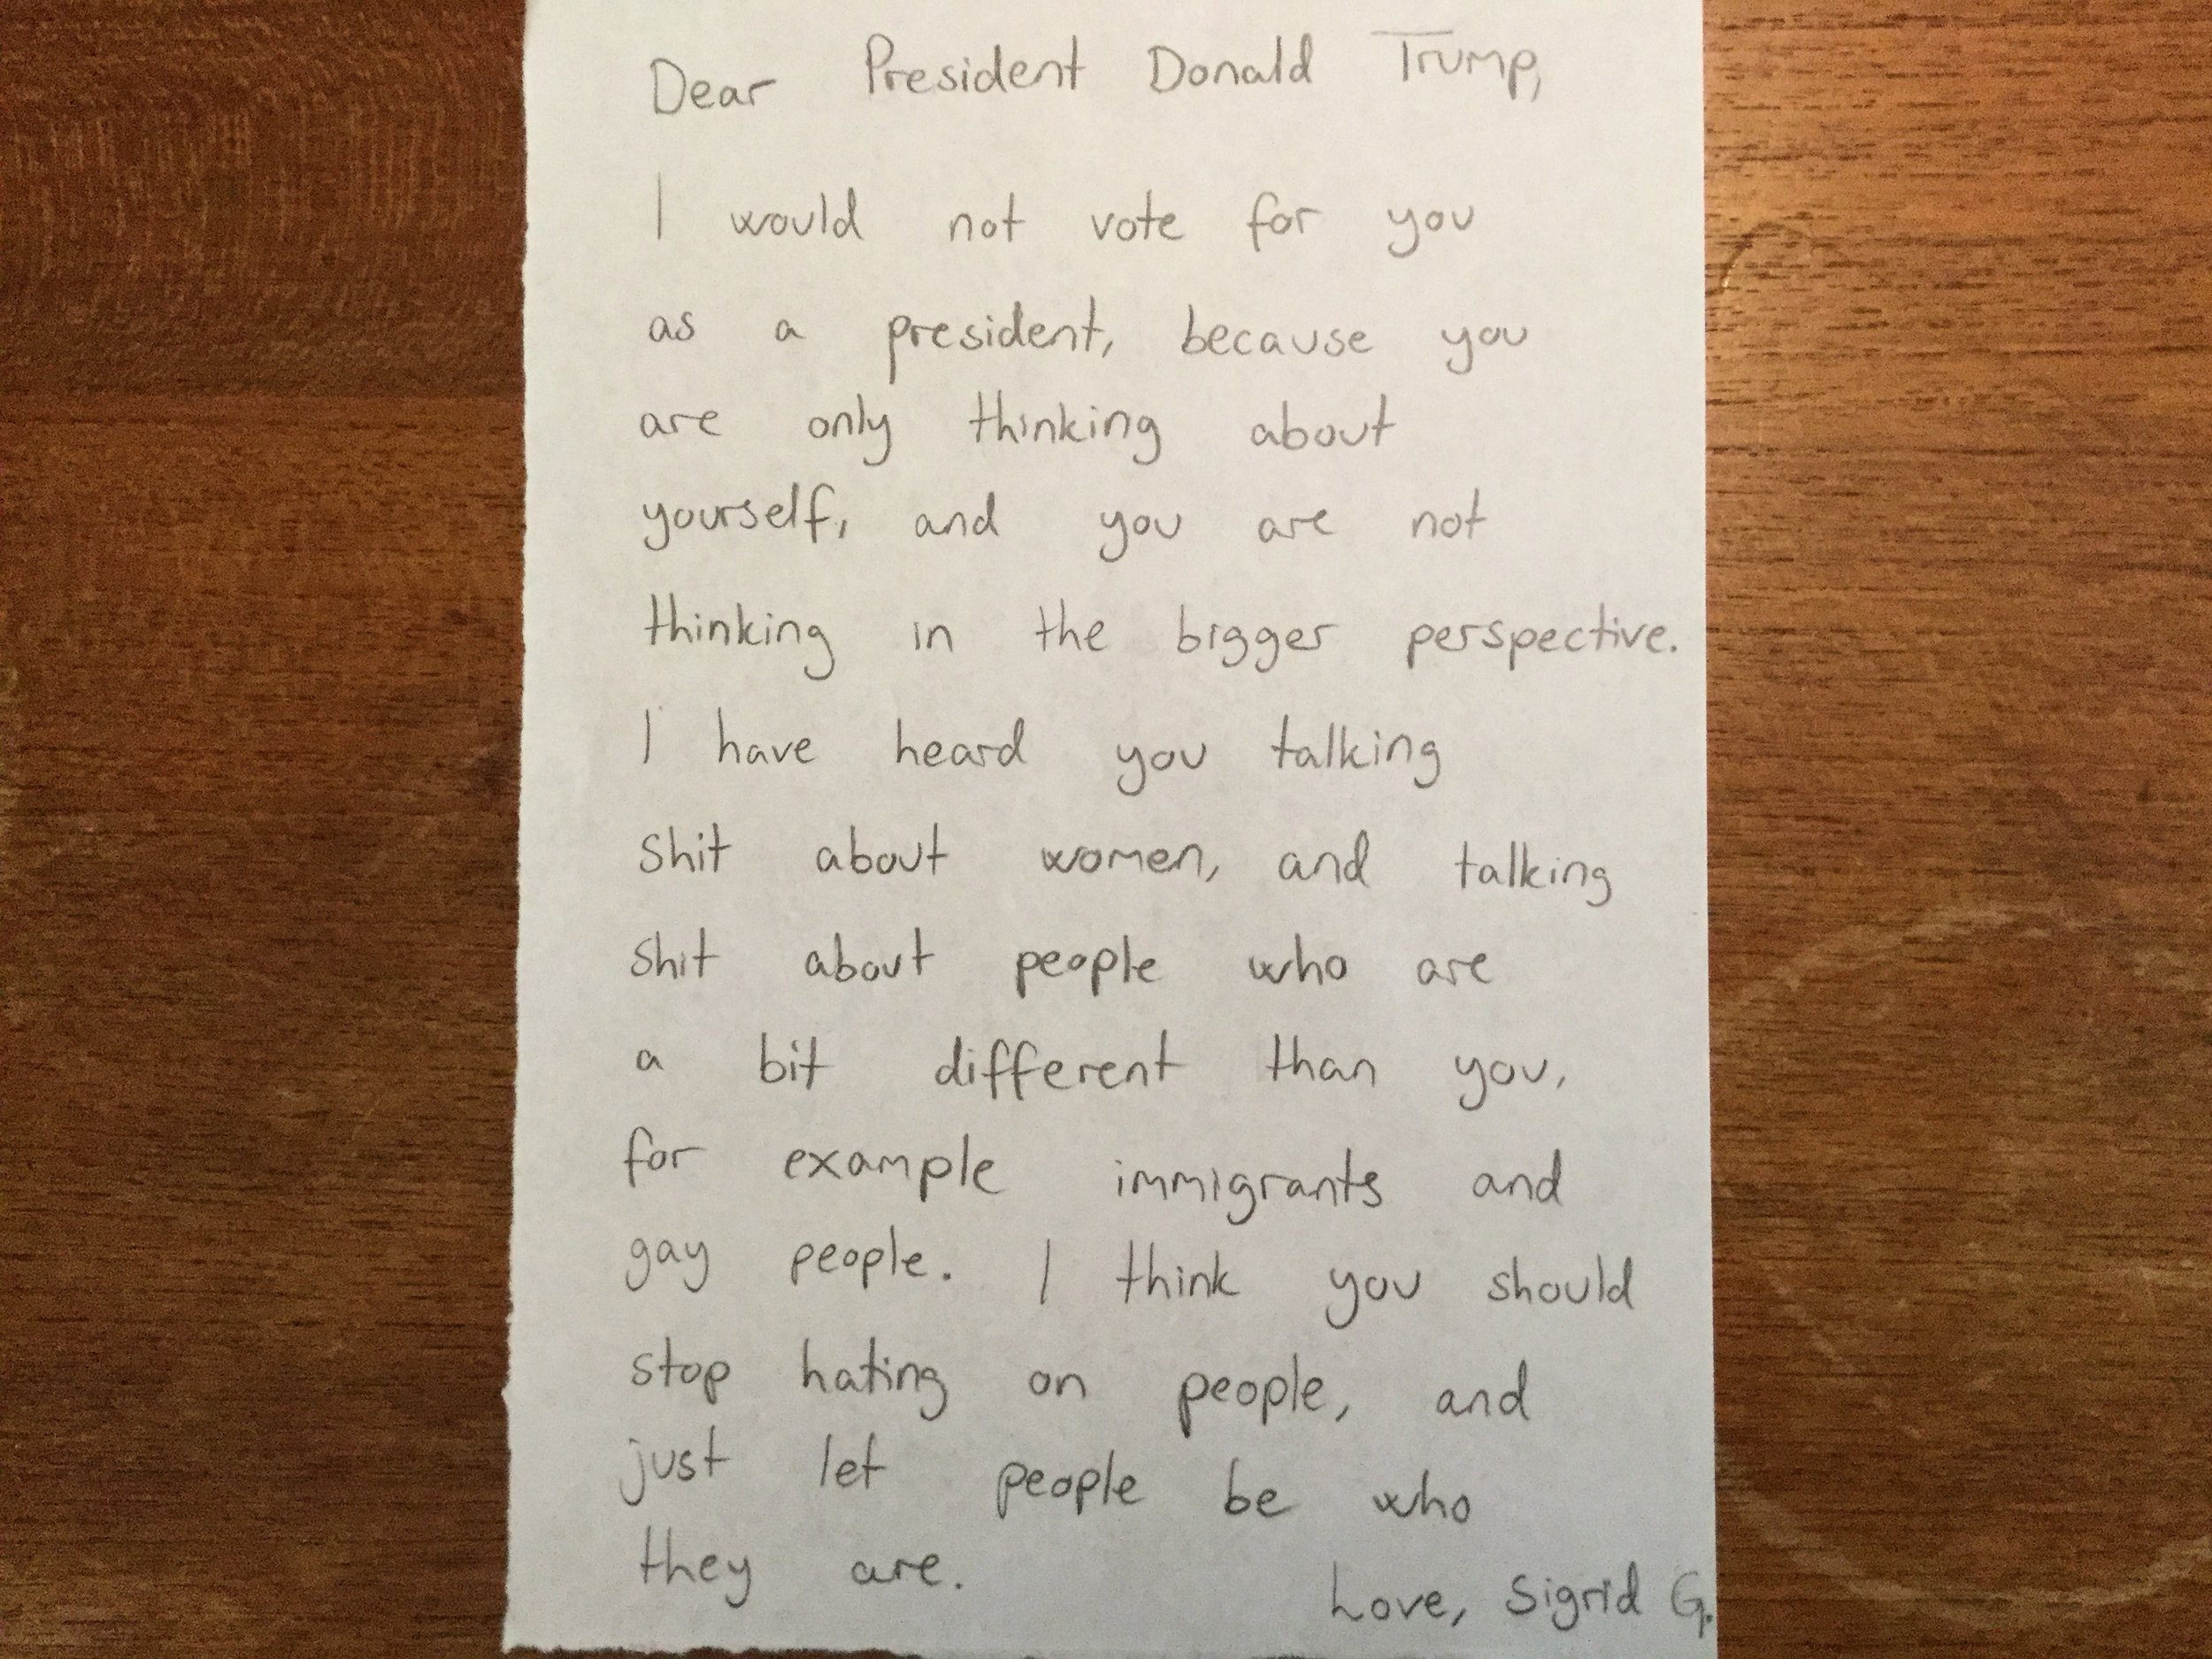 Dear President Donald Trump,
I would not vote for you
as a president, because you
are only thinking about
yourself, and you are not
thinking in the bigger perspective.
I have heard you talking
shit about women, and talking
shit about people who are
a bit different than you,
for example immigrants and
gay people. I think you should
stop hating on people, and
just let people be who
they are.
Love, Sigrid G.